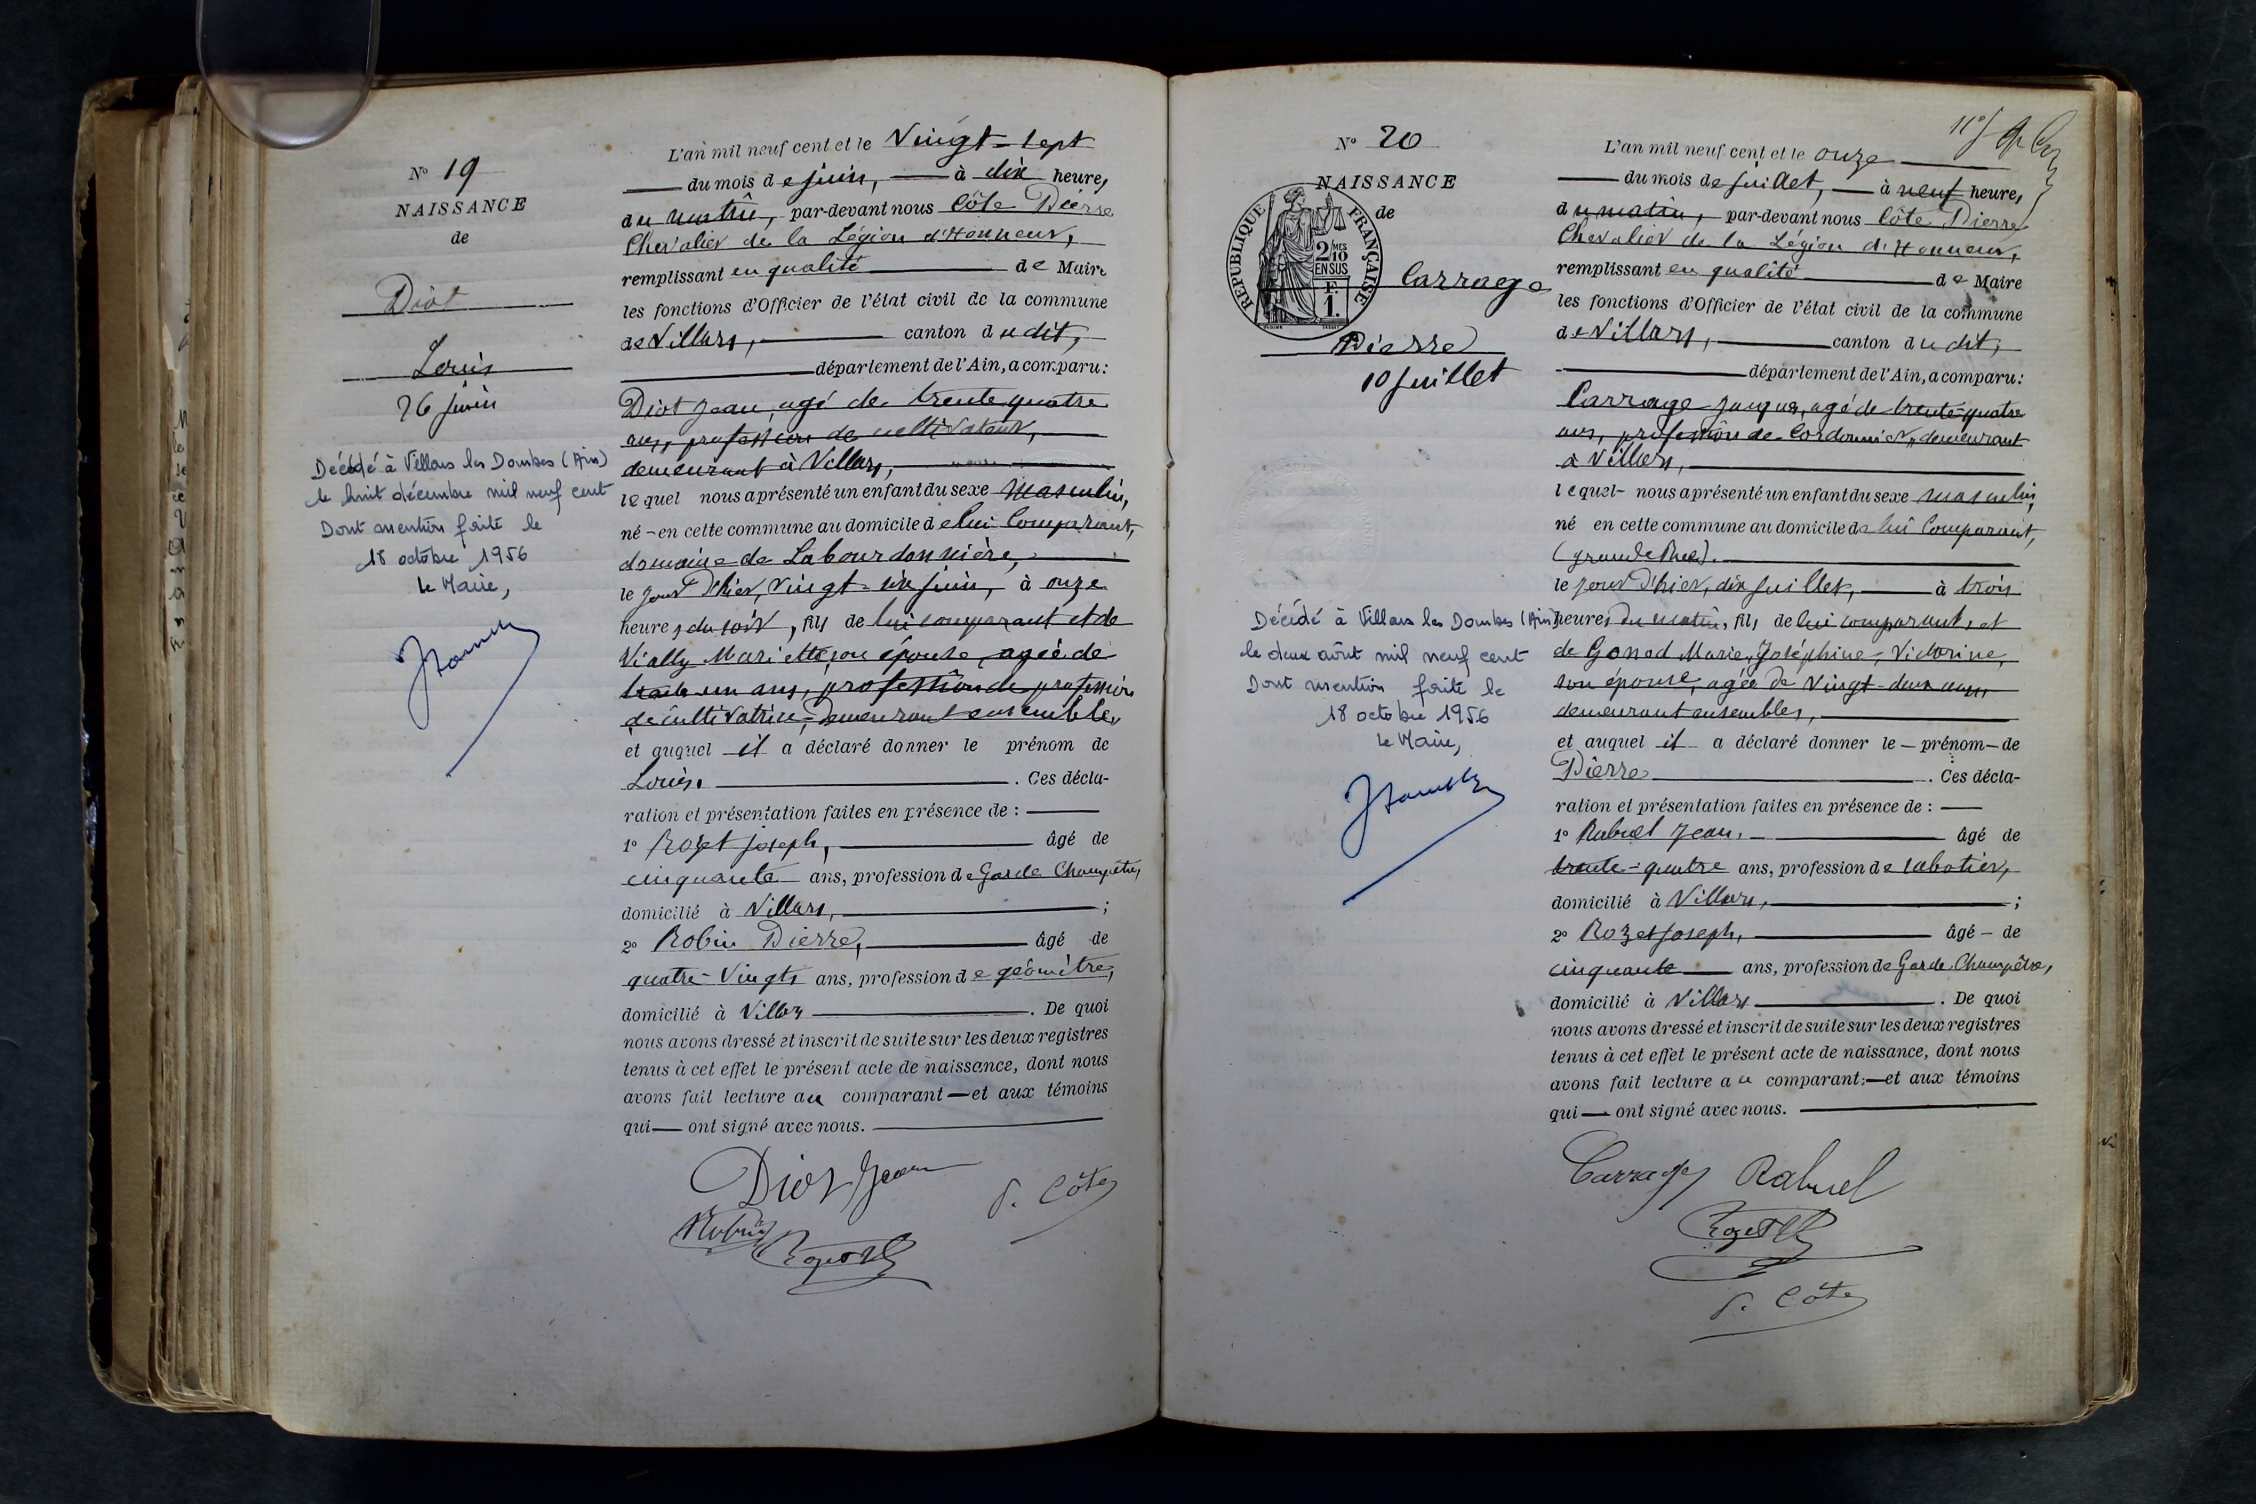 N° 19
NAISSANCE
de
Diot
Louis
26 juin
Décédé à Villars les Dombes (Ain)
le huit décembre mil neuf cent
Dont mention faite le
18 octobre 1956
le Maire,
L'an mil neuf cent et le Vingt-sept
du mois de juin, à dix heures
du matin, par-devant nous Côte Pierre
Chevalier de la Légion d'Honneur,
remplissant en qualité de Maire
les fonctions d'Officier de l'état civil de la commune
de Villars, canton dudit,
département de l'Ain, a comparu:
Diot Jean, agé de trente quatre
ans, profession de cultivateur,
demeurant à Villars,
lequel nous a présenté un enfant du sexe Masculin,
né - en cette commune au domicile de lui Comparant,
domaine de Labourdonnière,
le jour d'hier, Vingt-six juin, à onze
heures du soir, fils de lui comparant et de
Vially Mariette, son épouse, agée de
trente un ans, profession de profession
de cultivatrice, demeurant ensembles
et auquel il a déclaré donner le prénom de
Louis. Ces décla-
ration et présentation faites en présence de :
1° Rozet Joseph, âgé de
cinquante ans, profession de Garde Champêtre,
domicilié à Villars, ;
2° Robin Pierre, âgé de
quatre-Vingts ans, profession de géomètre,
domicilié à Villars . De quoi
nous avons dressé et inscrit de suite sur les deux registres
tenus à cet effet le présent acte de naissance, dont nous
avons fait lecture au comparant — et aux témoins
qui — ont signé avec nous.
Diot Jean
P. Côte
Robin
Rozet
N° 20
NAISSANCE
de
RÉPUBLIQUE FRANÇAISE
2/10 MES
EN SUS
1 F.
Carrage
Pierre
10 Juillet
Décédé à Villars les Dombes (Ain)
le deux août mil neuf cent
Dont mention faite le
18 octobre 1956
le Maire,
L'an mil neuf cent et le onze
du mois de juillet, à neuf heures
du matin, par-devant nous Côte Pierre
Chevalier de la Légion d'Honneur,
remplissant en qualité de Maire
les fonctions d'Officier de l'état civil de la commune
de Villars, canton dudit,
département de l'Ain, a comparu:
Carrage Jacques, agé de trente-quatre
ans, profession de Cordonnier, demeurant
à Villars,
lequel - nous a présenté un enfant du sexe masculin,
né en cette commune au domicile de lui Comparant,
(grande Rue).
le jour d'hier, dix Juillet, à trois
heures du matin, fils de lui comparant, et
de Gonod Marie, Joséphine, Victorine,
son épouse, agée de Vingt-deux ans,
demeurant ensembles,
et auquel il a déclaré donner le — prénom — de
Pierre . Ces décla-
ration et présentation faites en présence de : —
1° Rabuel Jean, âgé de
trente-quatre ans, profession de sabotier,
domicilié à Villars, ;
2° Rozet Joseph, âgé - de
cinquante ans, profession de Garde Champêtre,
domicilié à Villars . De quoi
nous avons dressé et inscrit de suite sur les deux registres
tenus à cet effet le présent acte de naissance, dont nous
avons fait lecture au comparant: — et aux témoins
qui — ont signé avec nous.
Carrage Rabuel
Rozet
P. Côte